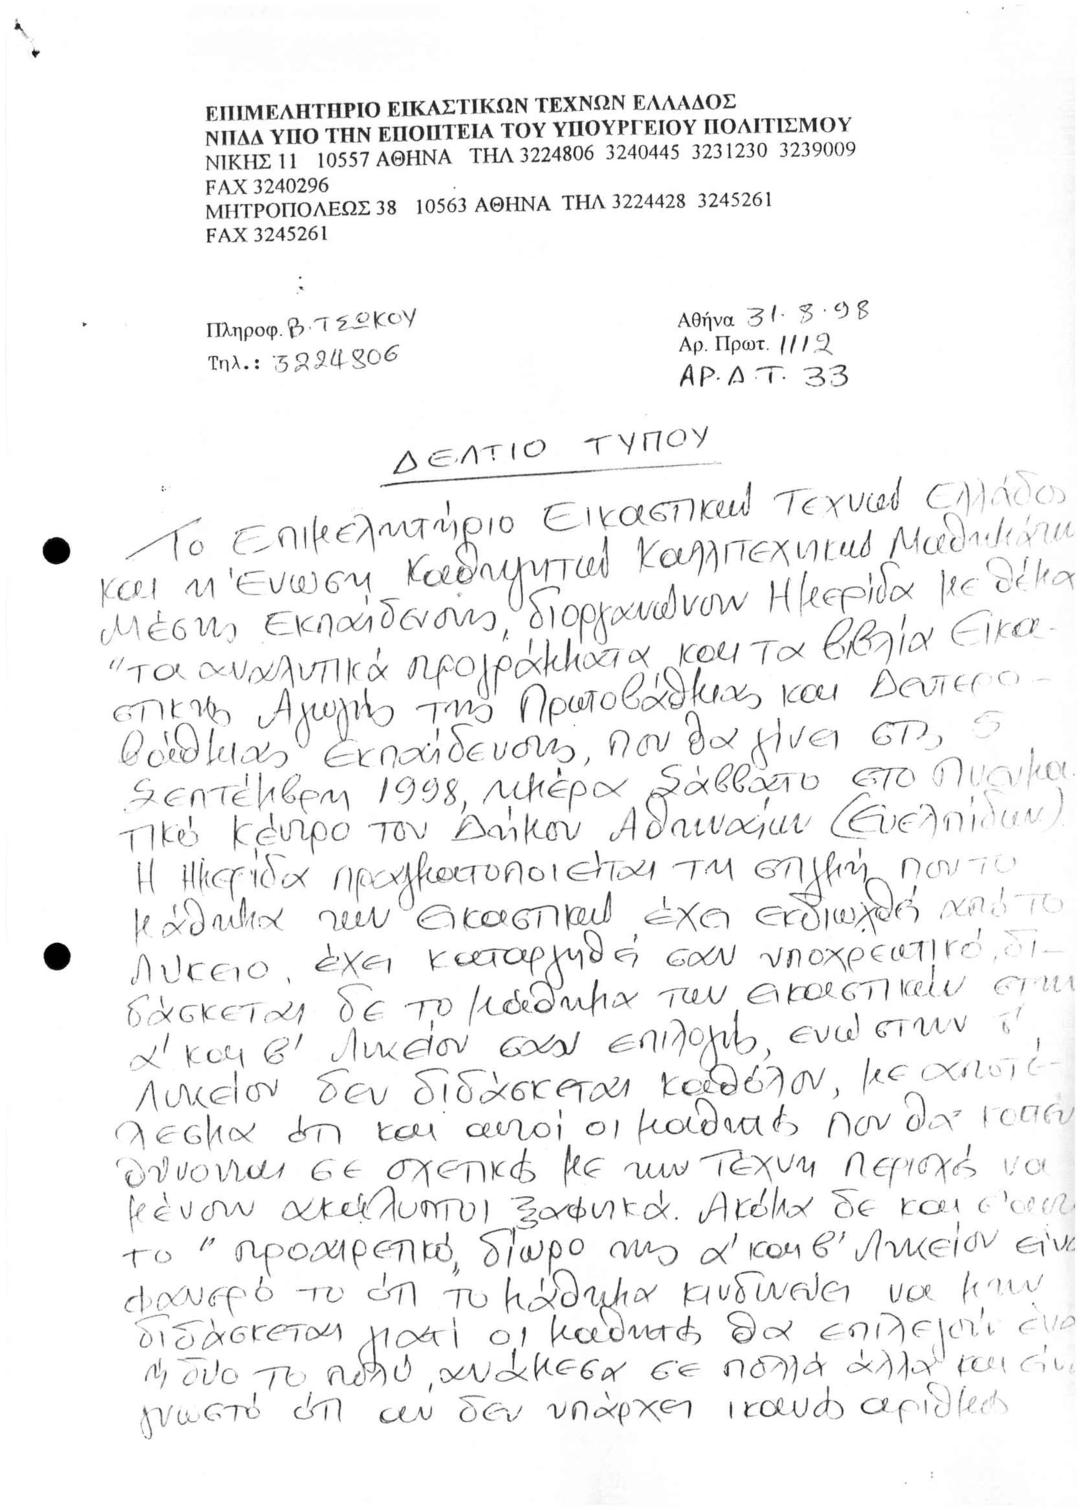 ΕΠΙΜΕΛΗΤΗΡΙΟ ΕΙΚΑΣΤΙΚΩΝ ΤΕΧΝΩΝ ΕΛΛΑΔΟΣ
ΝΠΔΔ ΥΠΟ ΤΗΝ ΕΠΟΠΤΕΙΑ ΤΟΥ ΥΠΟΥΡΓΕΙΟΥ ΠΟΛΙΤΙΣΜΟΥ
ΝΙΚΗΣ 11 10557 ΑΘΗΝΑ ΤΗΛ 3224806 3240445 3231230 3239009
FAX 3240296
ΜΗΤΡΟΠΟΛΕΩΣ 38 10563 ΑΘΗΝΑ ΤΗΛ 3224428 3245261
FAX 3245261
Πληροφ. Β. ΤΣΩΚΟΥ
Τηλ.: 3224806
Αθήνα 31·8·98
Αρ. Πρωτ. 1112
ΑΡ. Δ. Τ. 33
ΔΕΛΤΙΟ ΤΥΠΟΥ
Το Επιμελητήριο Εικαστικών Τεχνών Ελλάδος
και η Ένωση Καθηγητών Καλλιτεχνικών Μαθημάτων
Μέσης Εκπαίδευσης, διοργανώνουν Ημερίδα με θέμα
"τα αναλυτικά προγράμματα και τα βιβλία Εικα-
στικής Αγωγής της Πρωτοβάθμιας και Δευτερο-
βάθμιας Εκπαίδευσης, που θα γίνει στις 5
Σεπτέμβρη 1998, ημέρα Σάββατο στο Πνευμα-
τικό Κέντρο του Δήμου Αθηναίων (Ευελπίδων)
Η Ημερίδα πραγματοποιείται τη στιγμή που το
μάθημα των εικαστικών έχει εκδιωχθεί από το
Λύκειο, έχει καταργηθεί σαν υποχρεωτικό, δι-
δάσκεται δε το μάθημα των εικαστικών στην
α' και β' Λυκείου σαν επιλογής, ενώ στην γ'
Λυκείου δεν διδάσκεται καθόλου, με αποτέ-
λεσμα ότι και αυτοί οι μαθητές που θα κατευ
θύνονται σε σχετικές με την Τέχνη περιοχές να
μένουν ακάλυπτοι ξαφνικά. Ακόμα δε και σ'αυτό
το "προαιρετικό" δίωρο της α' και β' Λυκείου είναι
φανερό το ότι το μάθημα κινδυνεύει να μην
διδάσκεται γιατί οι μαθητές θα επιλεγούν ένα
ή δύο το πολύ, ανάμεσα σε πολλά άλλα και είναι
γνωστό ότι αν δεν υπάρχει ικανός αριθμός